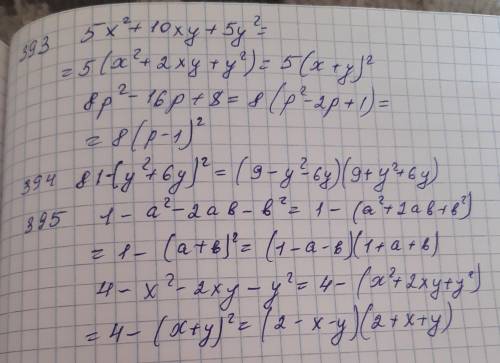 393 5x²+10xy+5y²=
=5(x²+2xy+y²)=5(x+y)²
8p²-16p+8=8(p²-2p+1)=
=8(p-1)²
394 81-(y²+6y)²=(9-y²-6y)(9+y²+6y)
395 1-a²-2ав-в²=1-(a²+2ав+в²)
=1-(a+в)²=(1-a-в)(1+a+в)
4-x²-2xy-y²=4-(x²+2xy+y²)
=4-(x+y)²=(2-x-y)(2+x+y)